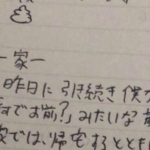 一家一
昨日に引き続き僕
何でお前？」みたいな
家では、帰宅するととも